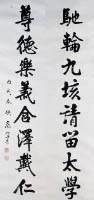 馳輪九垓請留太學
尊德樂義含澤戴仁